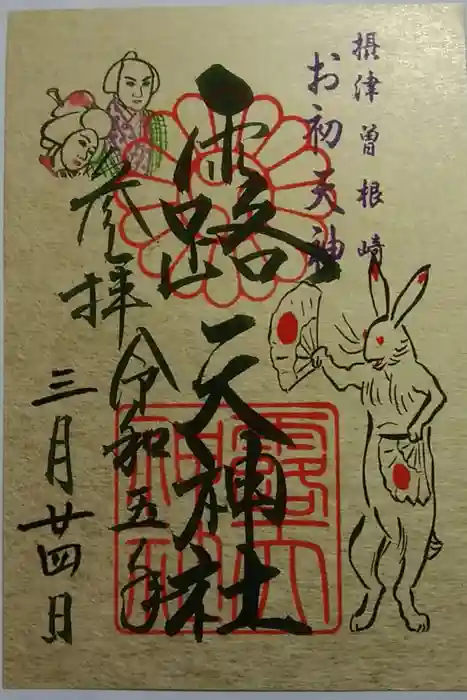 摂津曽根崎
お初天神
露天神社
参拝
令和五年
三月廿四日